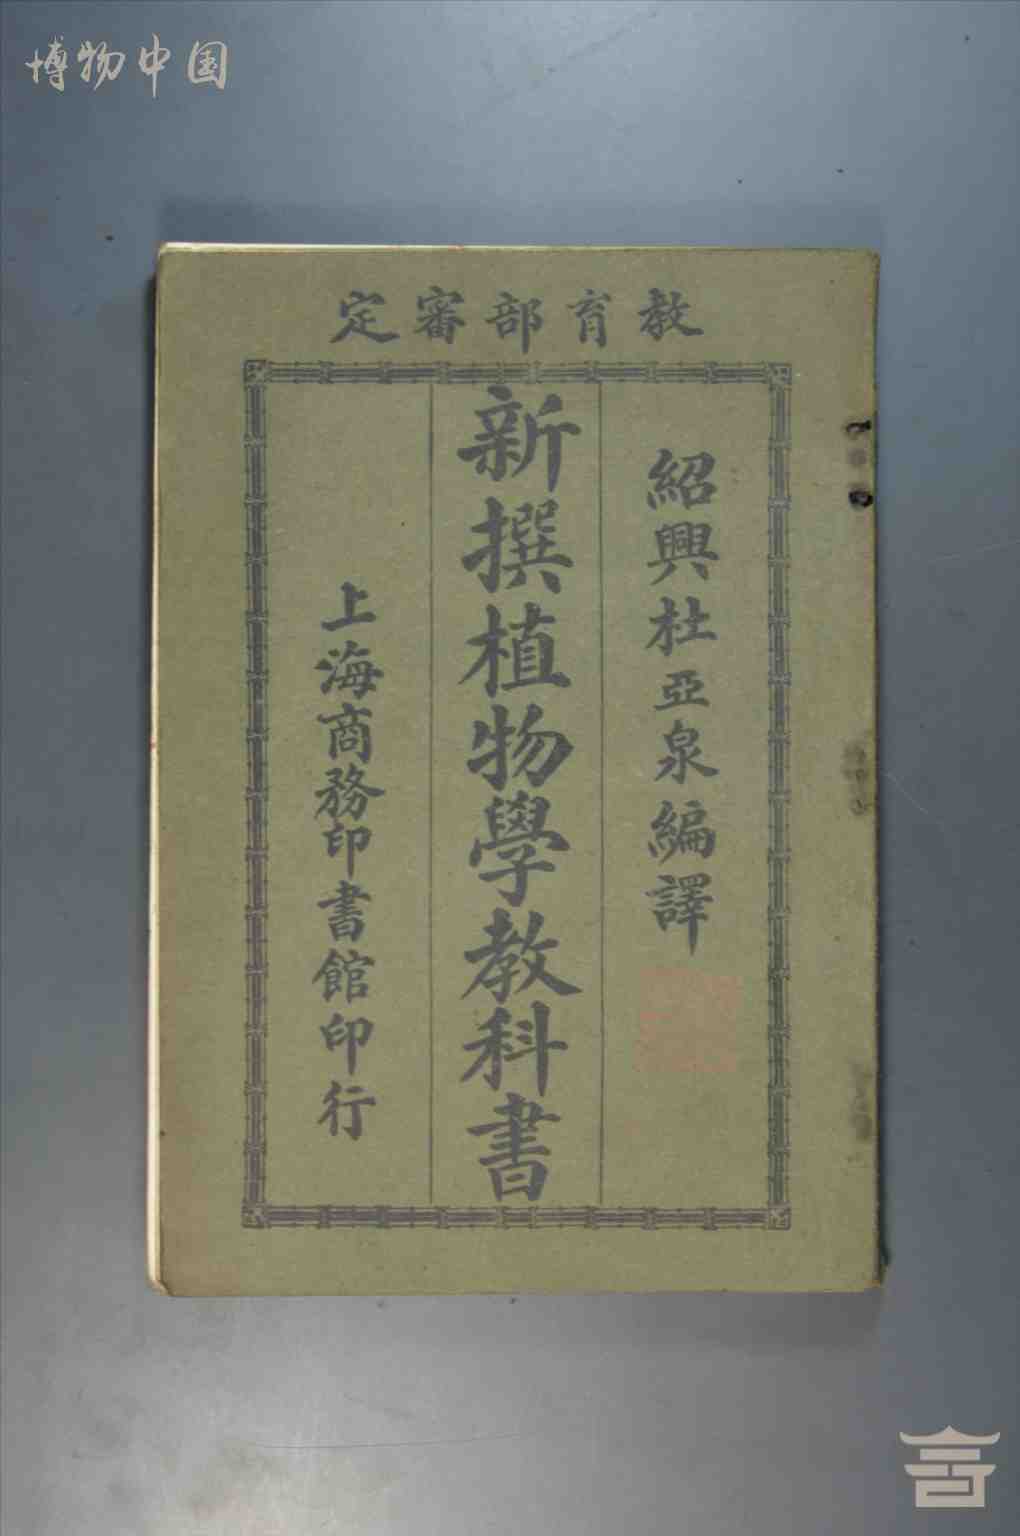 博物中国
教育部審定
紹興杜亞泉編譯
新撰植物學教科書
上海商務印書館印行